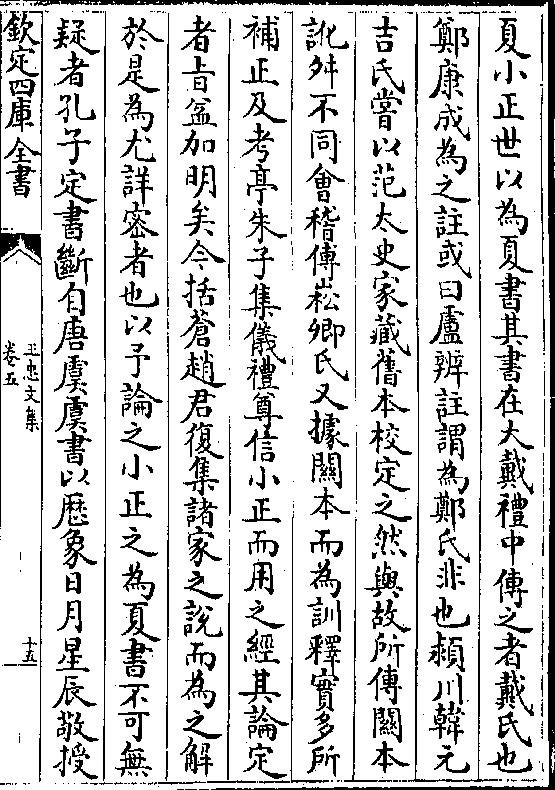 夏小正世以為夏書其書在大戴禮中傳之者戴氏也
鄭康成為之註或曰盧辨註謂為鄭氏非也潁川韓元
吉氏嘗以范太史家藏舊本校定之然與故所傳關本
訛舛不同會稽傅崧卿氏又據關本而為訓釋實多所
補正及考亭朱子集儀禮尊信小正而用之經其論定
者旨益加明矣今括蒼趙君復集諸家之說而為之解
於是為尤詳密者也以予論之小正之為夏書不可無
疑者孔子定書斷自唐虞虞書以厯象日月星辰敬授
欽定四庫全書
王忠文集
卷五
十五